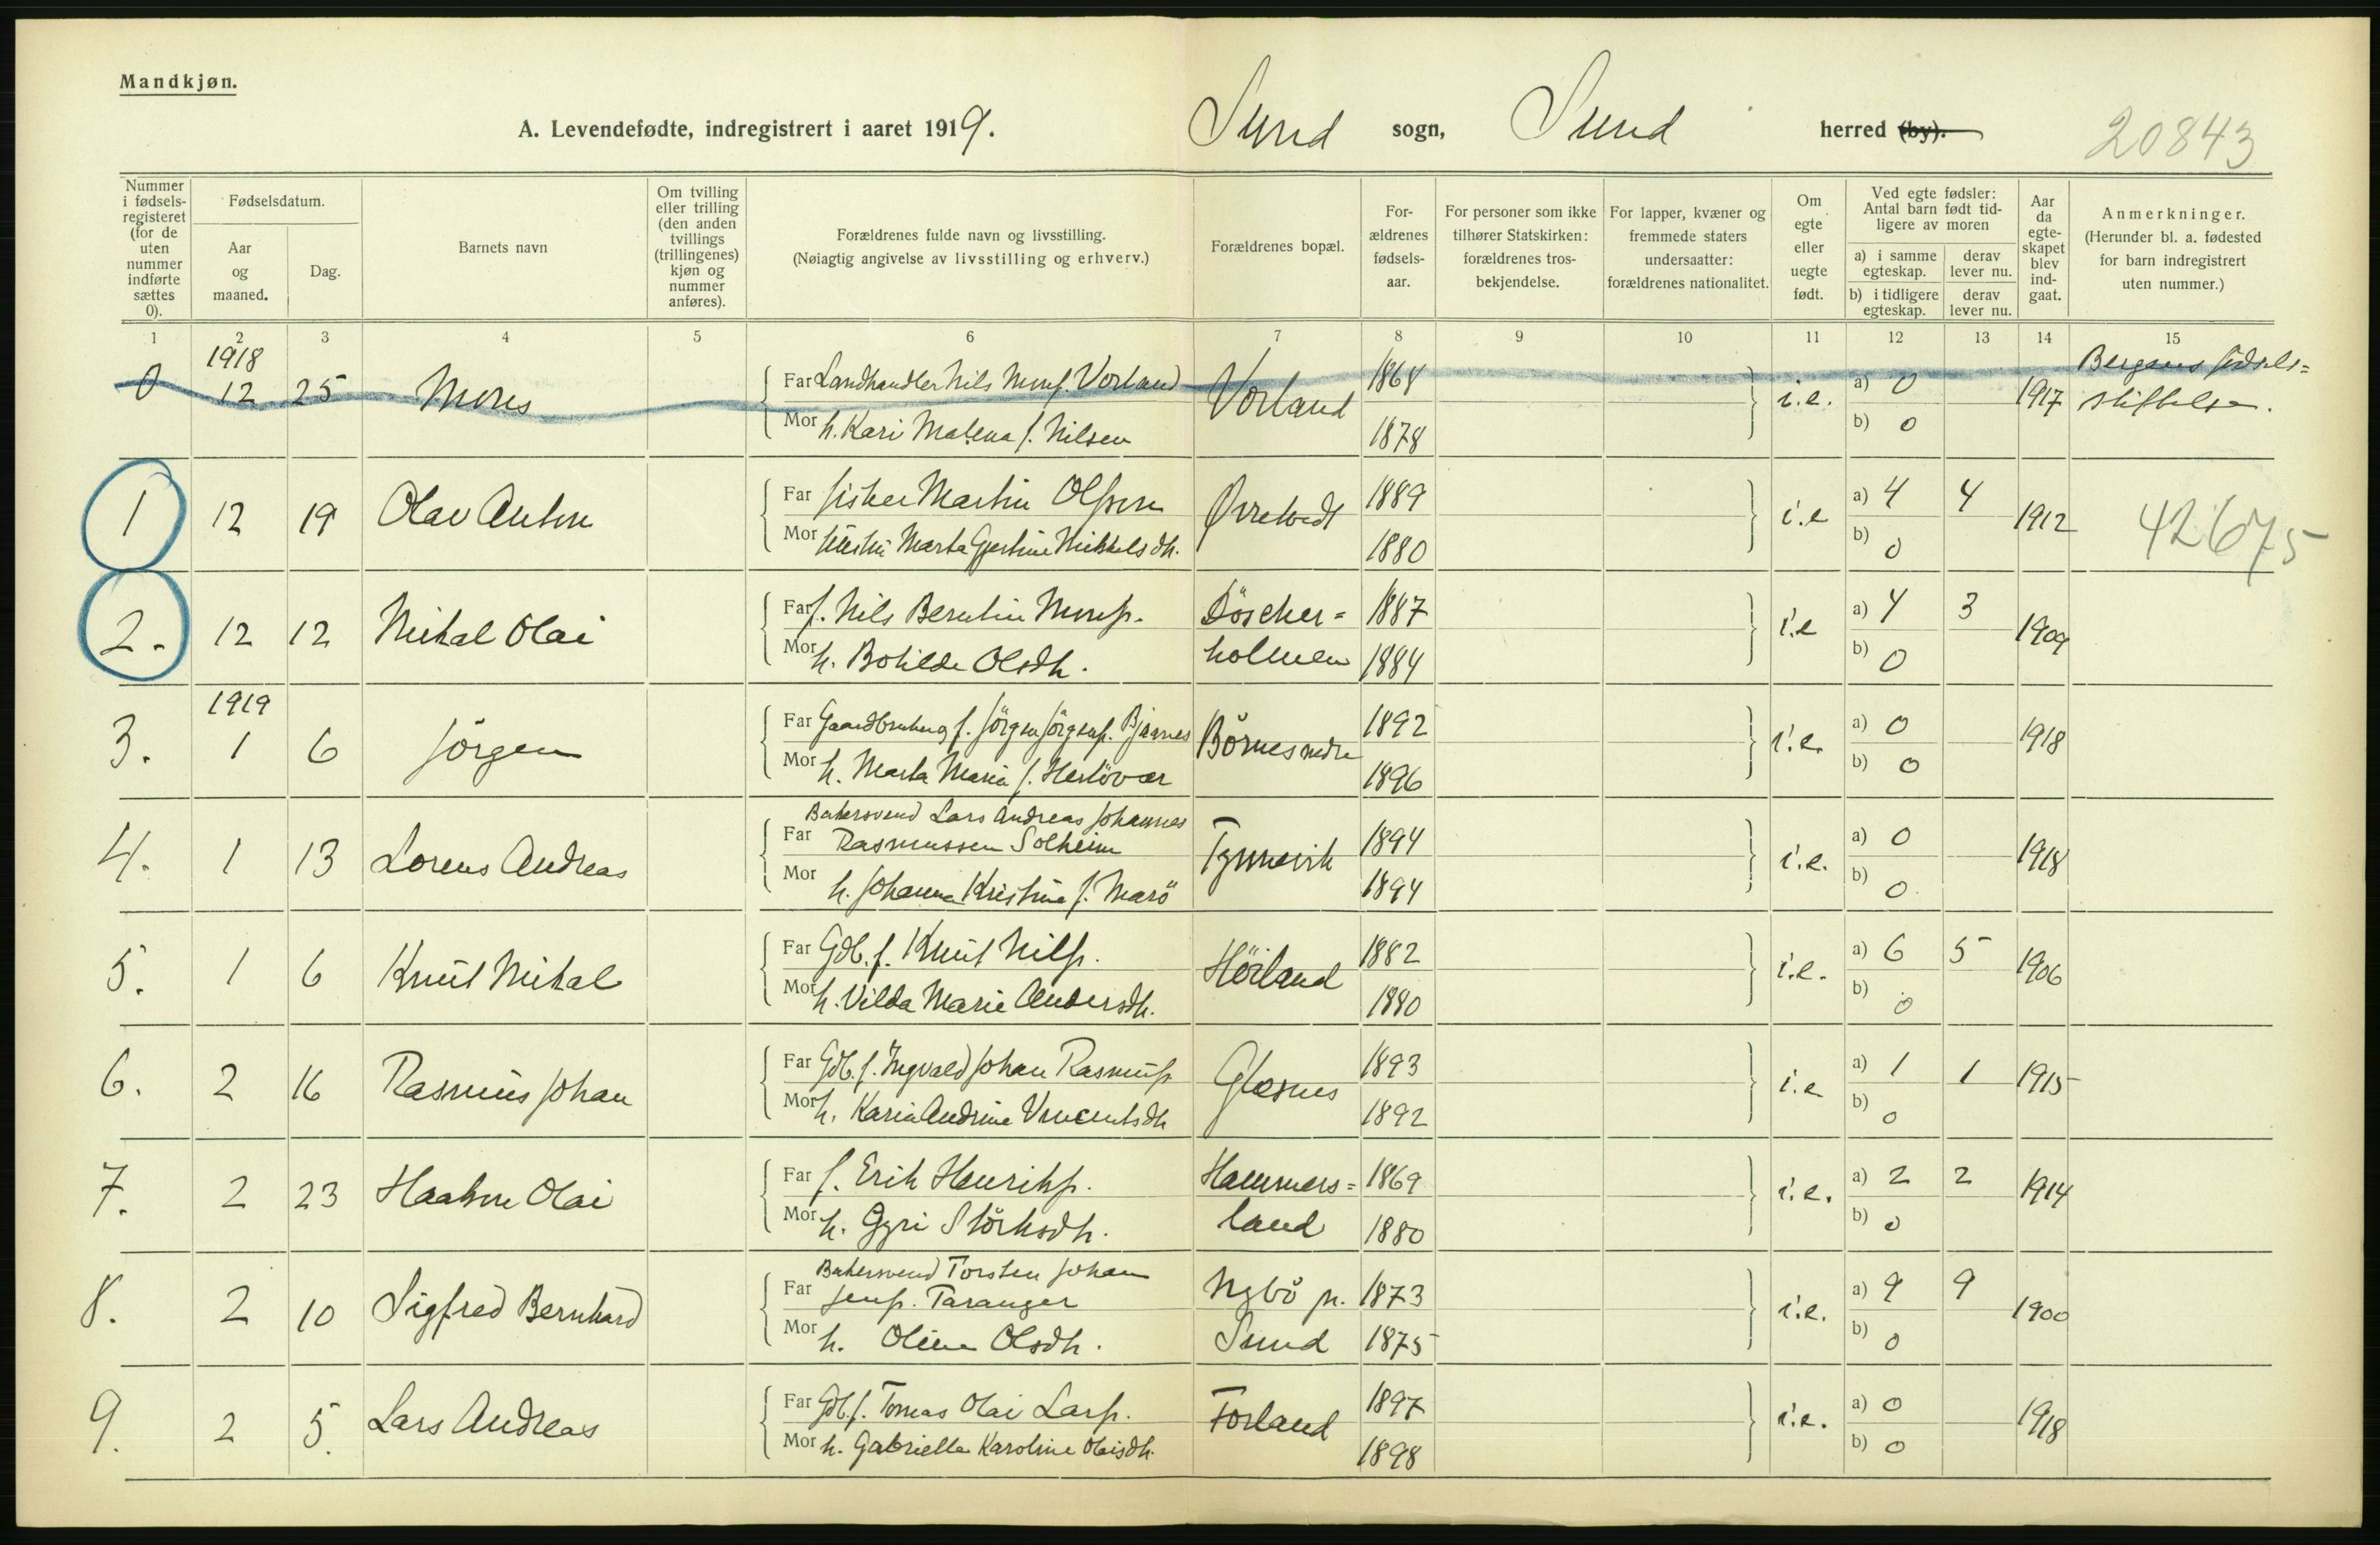 Mandkjøn.
A. Levendefødte, indregistrert i aaret 1919. Sund sogn, Sund herred (by).
20843
Nummer i fødsels-registeret (for de uten nummer indførte sættes 0).
Fødselsdatum.
Aar og maaned.
Dag.
Barnets navn
Om tvilling eller trilling (den anden tvillings (trillingenes) kjøn og nummer anføres).
Forældrenes fulde navn og livsstilling.
(Nøiagtig angivelse av livsstilling og erhverv.)
Forældrenes bopæl.
For-ældrenes fødsels-aar.
For personer som ikke tilhører Statskirken: forældrenes tros-bekjendelse.
For lapper, kvæner og fremmede staters undersaatter: forældrenes nationalitet.
Om egte eller uegte født.
Ved egte fødsler: Antal barn født tid-ligere av moren
a) i samme egteskap. derav lever nu.
b) i tidligere egteskap. derav lever nu.
Aar da egte-skapet blev ind-gaat.
Anmerkninger.
(Herunder bl. a. fødested for barn indregistrert uten nummer.)
1 2 3 4 5 6 7 8 9 10 11 12 13 14 15
1918
0 12 25 Mons Far Landhandler Nils Monss. Vorland Vorland 1868 i.e. a) 0 1917 Bergens fødsels=
Mor h. Kari Malena f. Nilsen 1878 b) 0 stiftelse.
1 12 19 Olav Anton Far fisker Martin Olsson 1889 i.e a) 4 4 1912 42675
Mor hustru Marta Gjertine Mikkelsdtr. 1880 b) 0
2. 12 12 Mikal Olai Far f. Nils Berntin Monss. 1887 i.e a) 4 3 1909
Mor h. Botilde Olsdtr. holmen 1884 b) 0
1919
3. 1 6 Jörgen Far Gaardbruker og f. Jörgen Jörgens. Bjørnes 1892 i.e. a) 0 1918
Mor h. Marta Maria f. Herlövær 1896 b) 0
4. 1 13 Lorens Andreas Bakersvend Lars Andreas Johannes
Far Rasmussen Solheim 1894 i.e. a) 0 1918
Mor h. Johanna Kristine f. Marö 1894 b) 0
5. 1 6 Knut Mikal Far Gdb. f. Knut Nilss. Höiland 1882 i.e. a) 6 5 1906
Mor h. Vilda Marie Andersdtr. 1880 b) 0
6. 2 16 Rasmus Johan Far Gdb. f. Ingvald Johan Rasmuss Glesnes 1893 i.e a) 1 1 1915
Mor h. Karia Andrine Vincentsdtr 1892 b) 0
7. 2 23 Haakon Olai Far f. Erik Henriks. Hammers= 1869 i.e. a) 2 2 1914
Mor h. Gyri Störksdtr. land 1880 b) 0
8. 2 10 Sigfred Bernhard Bakersvend Torsten Johan
Far Jenss. Taranger Nybö p. 1873 i.e. a) 9 9 1900
Mor h. Oline Olsdtr. Sund 1875 b) 0
9. 2 5. Lars Andreas Far Gdb. f. Tomas Olai Larss. Forland 1897 i.e. a) 0 1918
Mor h. Gabriella Karoline Olaisdtr. 1898 b) 0